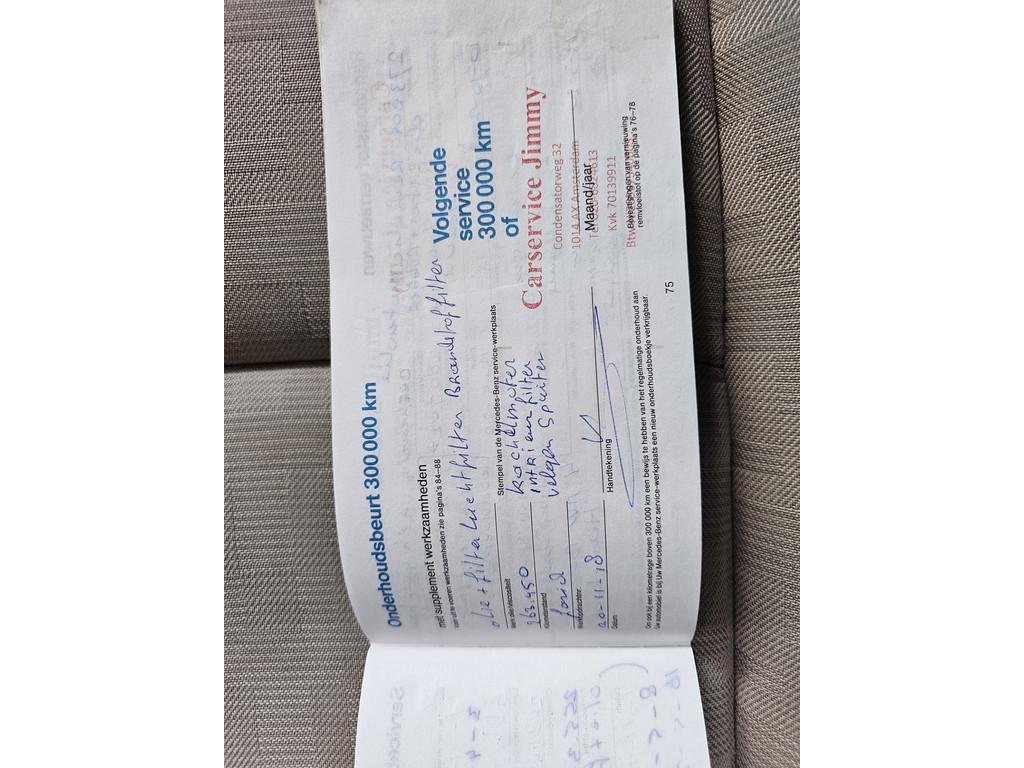 Onderhoudsbeurt 300 000 km
met supplement werkzaamheden
voor uit te voeren werkzaamheden zie pagina's 84–88
olie+filter Luchtfilter Brandstoffilter
Merk olie/viscositeit
963.450
Kilometerstand
Werkopdrachtnr.
20-11-18
Datum
Stempel van de Mercedes-Benz service-werkplaats
kachelmoter
intrieurfilter
velgen Spuiter
Handtekening
Volgende
service
300 000 km
of
Carservice Jimmy
Condensatorweg 32
1014 AX Amsterdam
Maand/jaar
Kvk 70139911
Btw
remvloeistof op de pagina's 76–78
Om ook bij een kilometrage boven 300 000 km een bewijs te hebben van het regelmatige onderhoud aan
Uw automobiel is bij Uw Mercedes-Benz service-werkplaats een nieuw onderhoudsboekje verkrijgbaar.
75